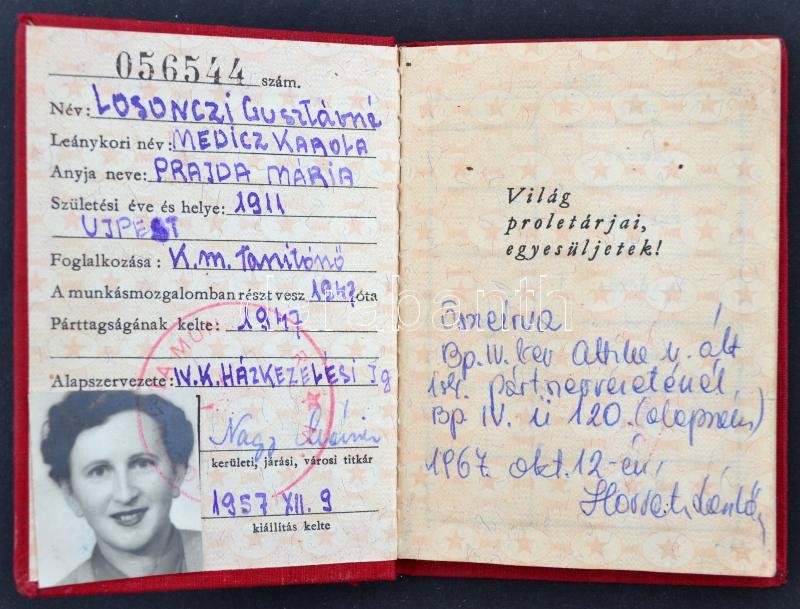 056544 szám.
Név: LOSONCZI GUSZTÁVNÉ
Leánykori név: MEDICZ KAROLA
Anyja neve: PRAJDA MÁRIA
Születési éve és helye: 1911
UJPEST
Foglalkozása: K.m. Tanítónő
A munkásmozgalomban részt vesz 1947 óta
Párttagságának kelte: 1947
Alapszervezete: IV.K. HÁZKEZELÉSI Ig
Nagy
kerületi, járási, városi titkár
1957 XII. 9
kiállítás kelte
Világ
proletárjai,
egyesüljetek!
darabanth
Átírva
Bp. IV. ker Attila u. ált
isk. pártszervezeténél
Bp IV. ü 120. (alapszerv)
1967. okt. 12-én,